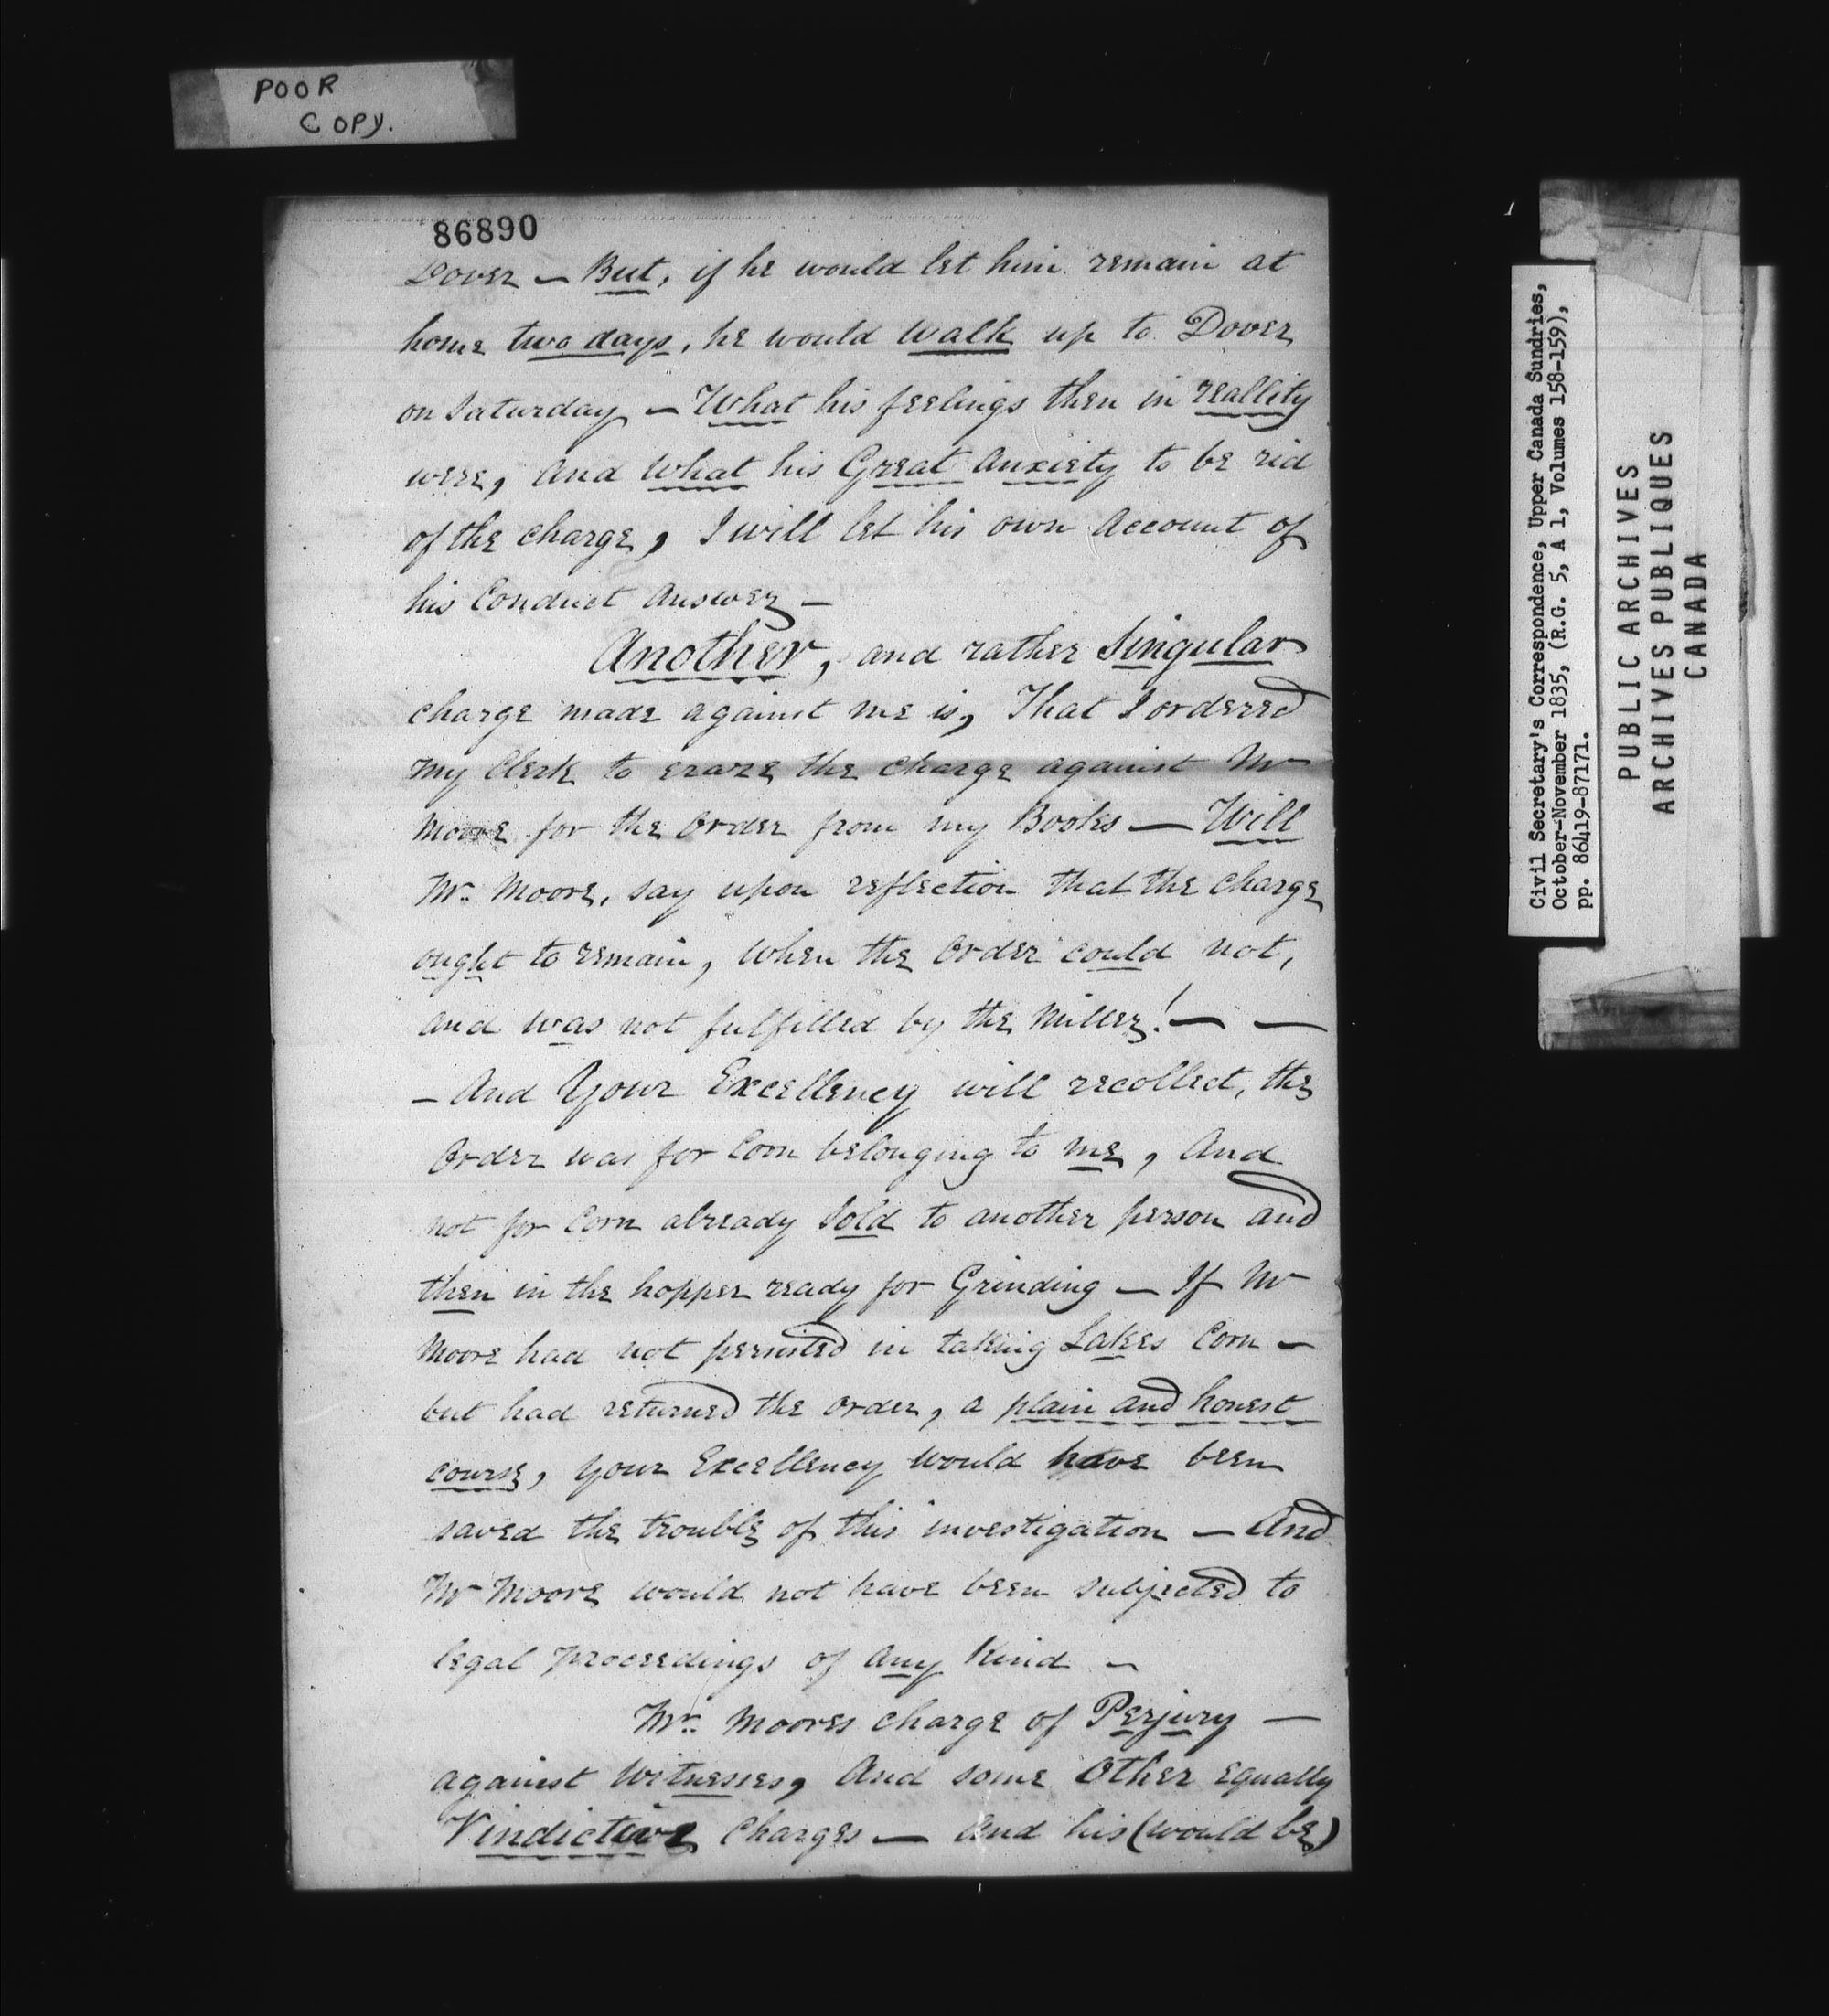 POOR
COPY.
86890
Dover — But, if he would let him remain at
home two days, he would walk up to Dover
on Saturday — What his feelings then in reallity
were, And What his Great Anxiety to be rid
of the charge, I will let his own Account of
his Conduct Answer —
Another, and rather Singular
charge made against me is, That I ordered
my Clerk to eraze the charge against Mr
Moore for the Order from my Books — Will
Mr. Moore, say upon reflection that the charge
ought to remain, When the Order could not,
and was not fulfilled by the Miller! — —
— And Your Excellency will recollect, the
Order was for Corn belonging to me, And
not for Corn already Sold to another person and
then in the hopper ready for Grinding — If Mr
Moore had not persisted in taking Lakes Corn —
but had returned the order, a plain and honest
course, Your Excellency would have been
saved the trouble of this investigation — And
Mr Moore would not have been subjected to
legal proceedings of Any Kind —
Mr. Moores charge of Perjury —
against Witnesses, And some Other equally
Vindictive Charges — And his (would be)
Civil Secretary's Correspondence, Upper Canada Sundries,
October-November 1835, (R.G. 5, A 1, Volumes 158-159),
pp. 86419-87171.
PUBLIC ARCHIVES
ARCHIVES PUBLIQUES
CANADA